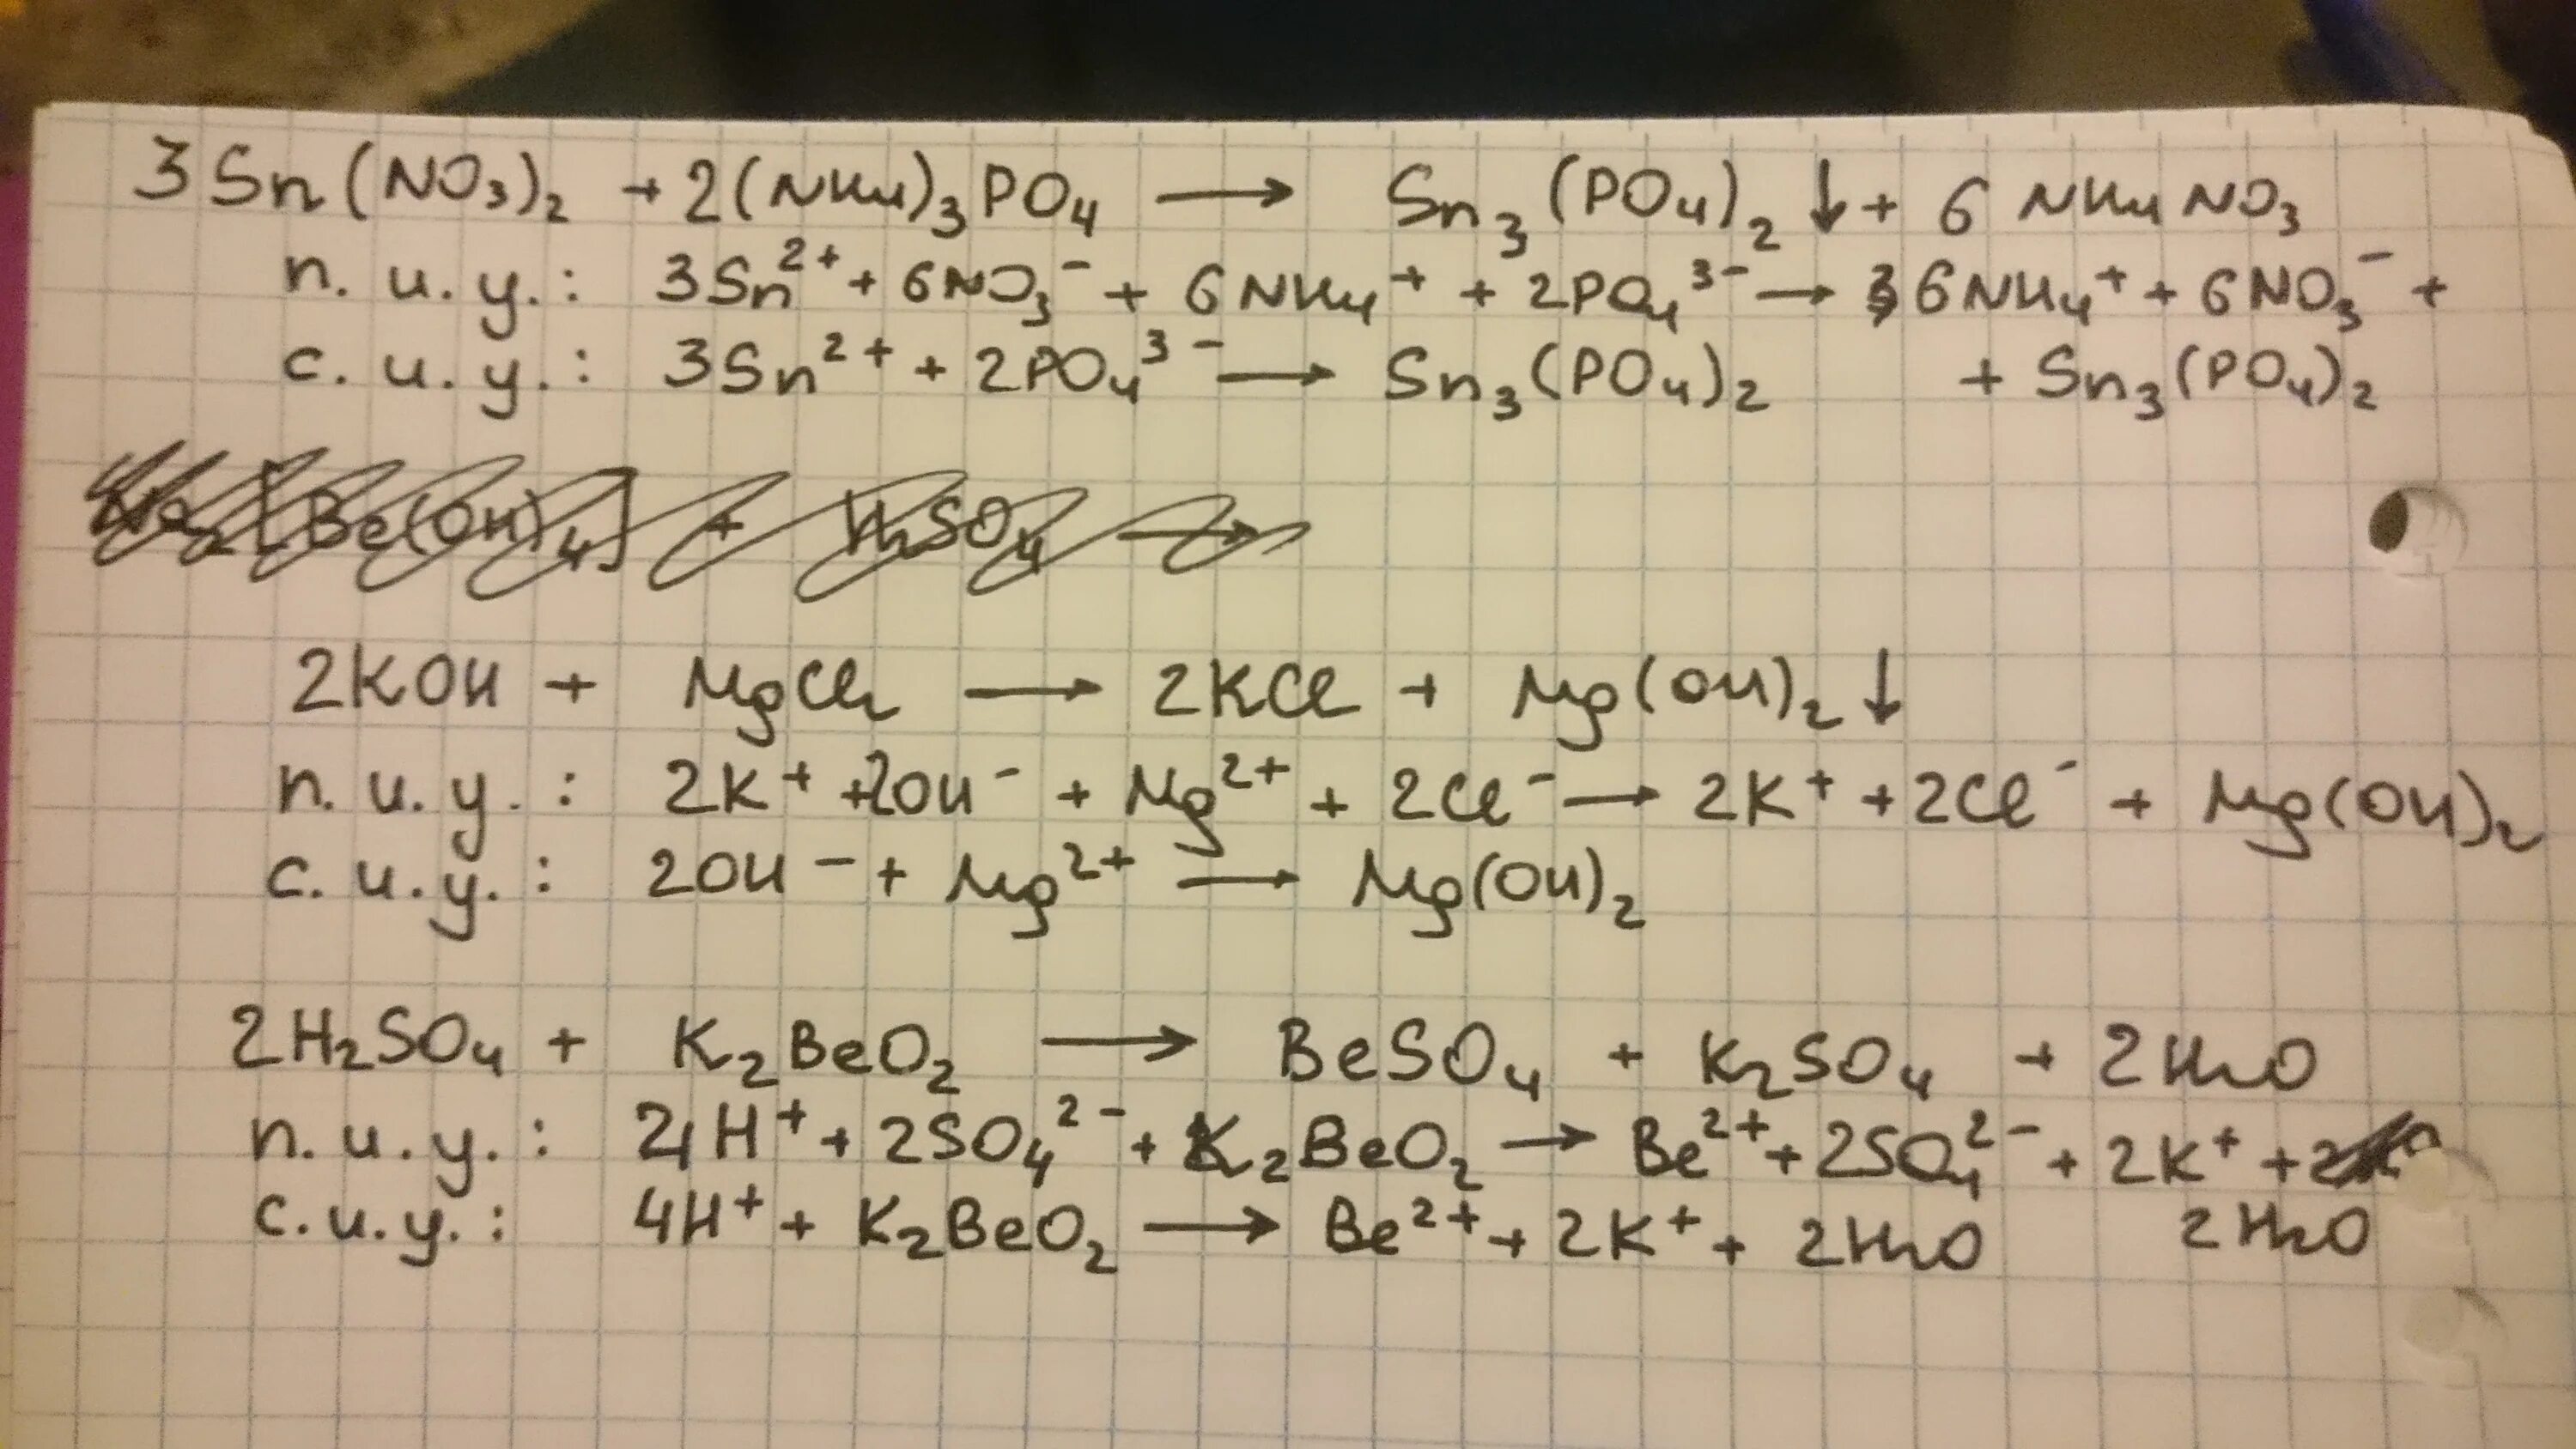 3Sn(NO₃)₂ + 2(NH₄)₃PO₄ → Sn₃(PO₄)₂↓ + 6NH₄NO₃
п. и. у.: 3Sn²⁺ + 6NO₃⁻ + 6NH₄⁺ + 2PO₄³⁻ → 6NH₄⁺ + 6NO₃⁻ +
+ Sn₃(PO₄)₂
с. и. у.: 3Sn²⁺ + 2PO₄³⁻ → Sn₃(PO₄)₂
Na₂[Be(OH)₄] + H₂SO₄ →
2KOH + MgCl₂ → 2KCl + Mg(OH)₂↓
п. и. у.: 2K⁺ + 2OH⁻ + Mg²⁺ + 2Cl⁻ → 2K⁺ + 2Cl⁻ + Mg(OH)₂
с. и. у.: 2OH⁻ + Mg²⁺ → Mg(OH)₂
2H₂SO₄ + K₂BeO₂ → BeSO₄ + K₂SO₄ + 2H₂O
п. и. у.: 4H⁺ + 2SO₄²⁻ + K₂BeO₂ → Be²⁺ + 2SO₄²⁻ + 2K⁺ +
2H₂O
с. и. у.: 4H⁺ + K₂BeO₂ → Be²⁺ + 2K⁺ + 2H₂O